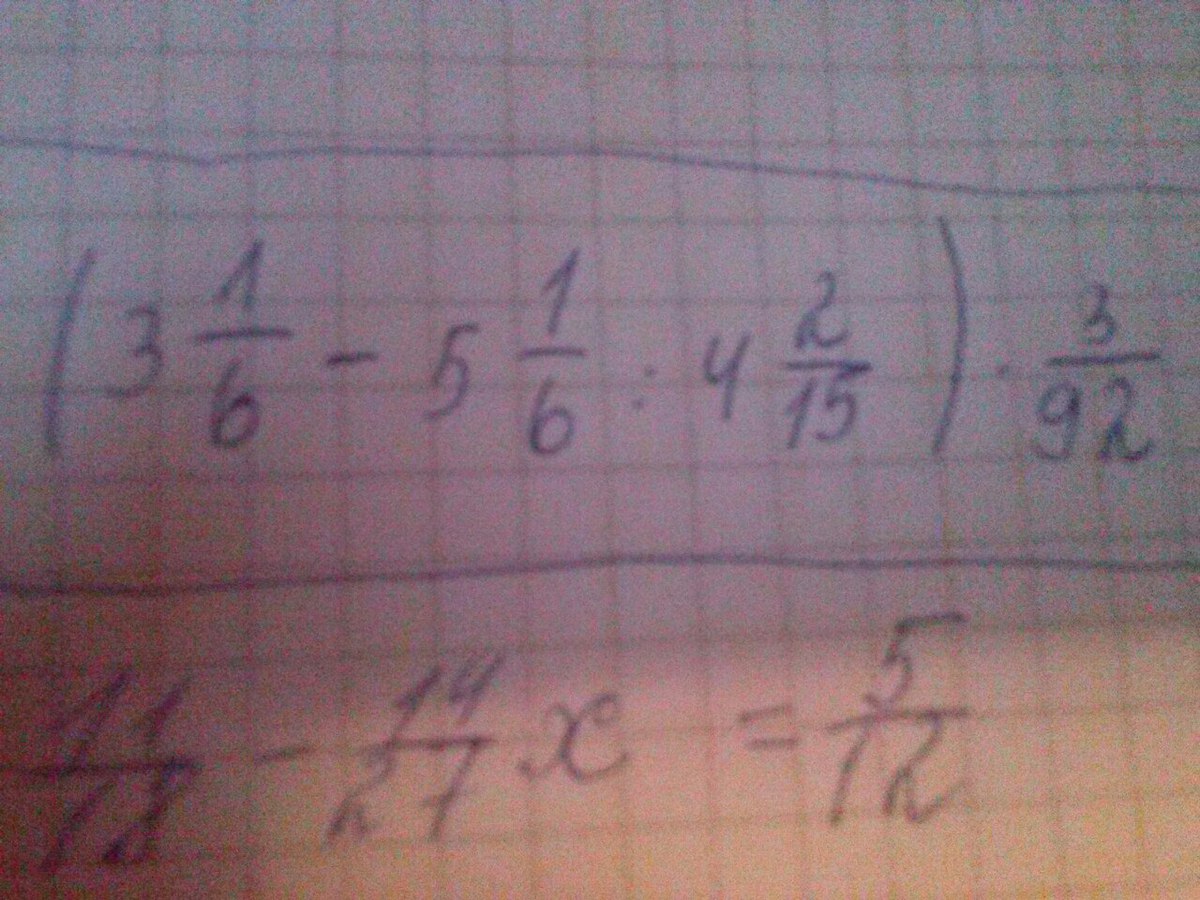 (3 1/6 - 5 1/6 : 4 2/15) · 3/92
11/18 - 14/27 x = 5/12